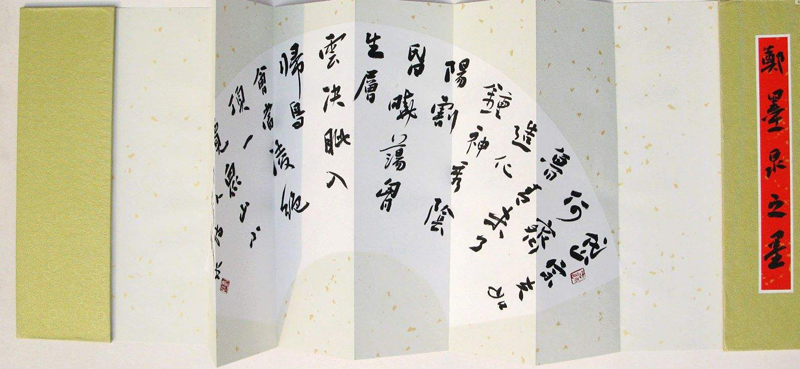 鄭墨泉之墨
岱宗夫如
何齊
魯青未了
造化
鍾神秀陰
陽割
昏曉蕩胸
生層
雲決眥入
歸鳥
會當凌絕
頂一
覽眾山小